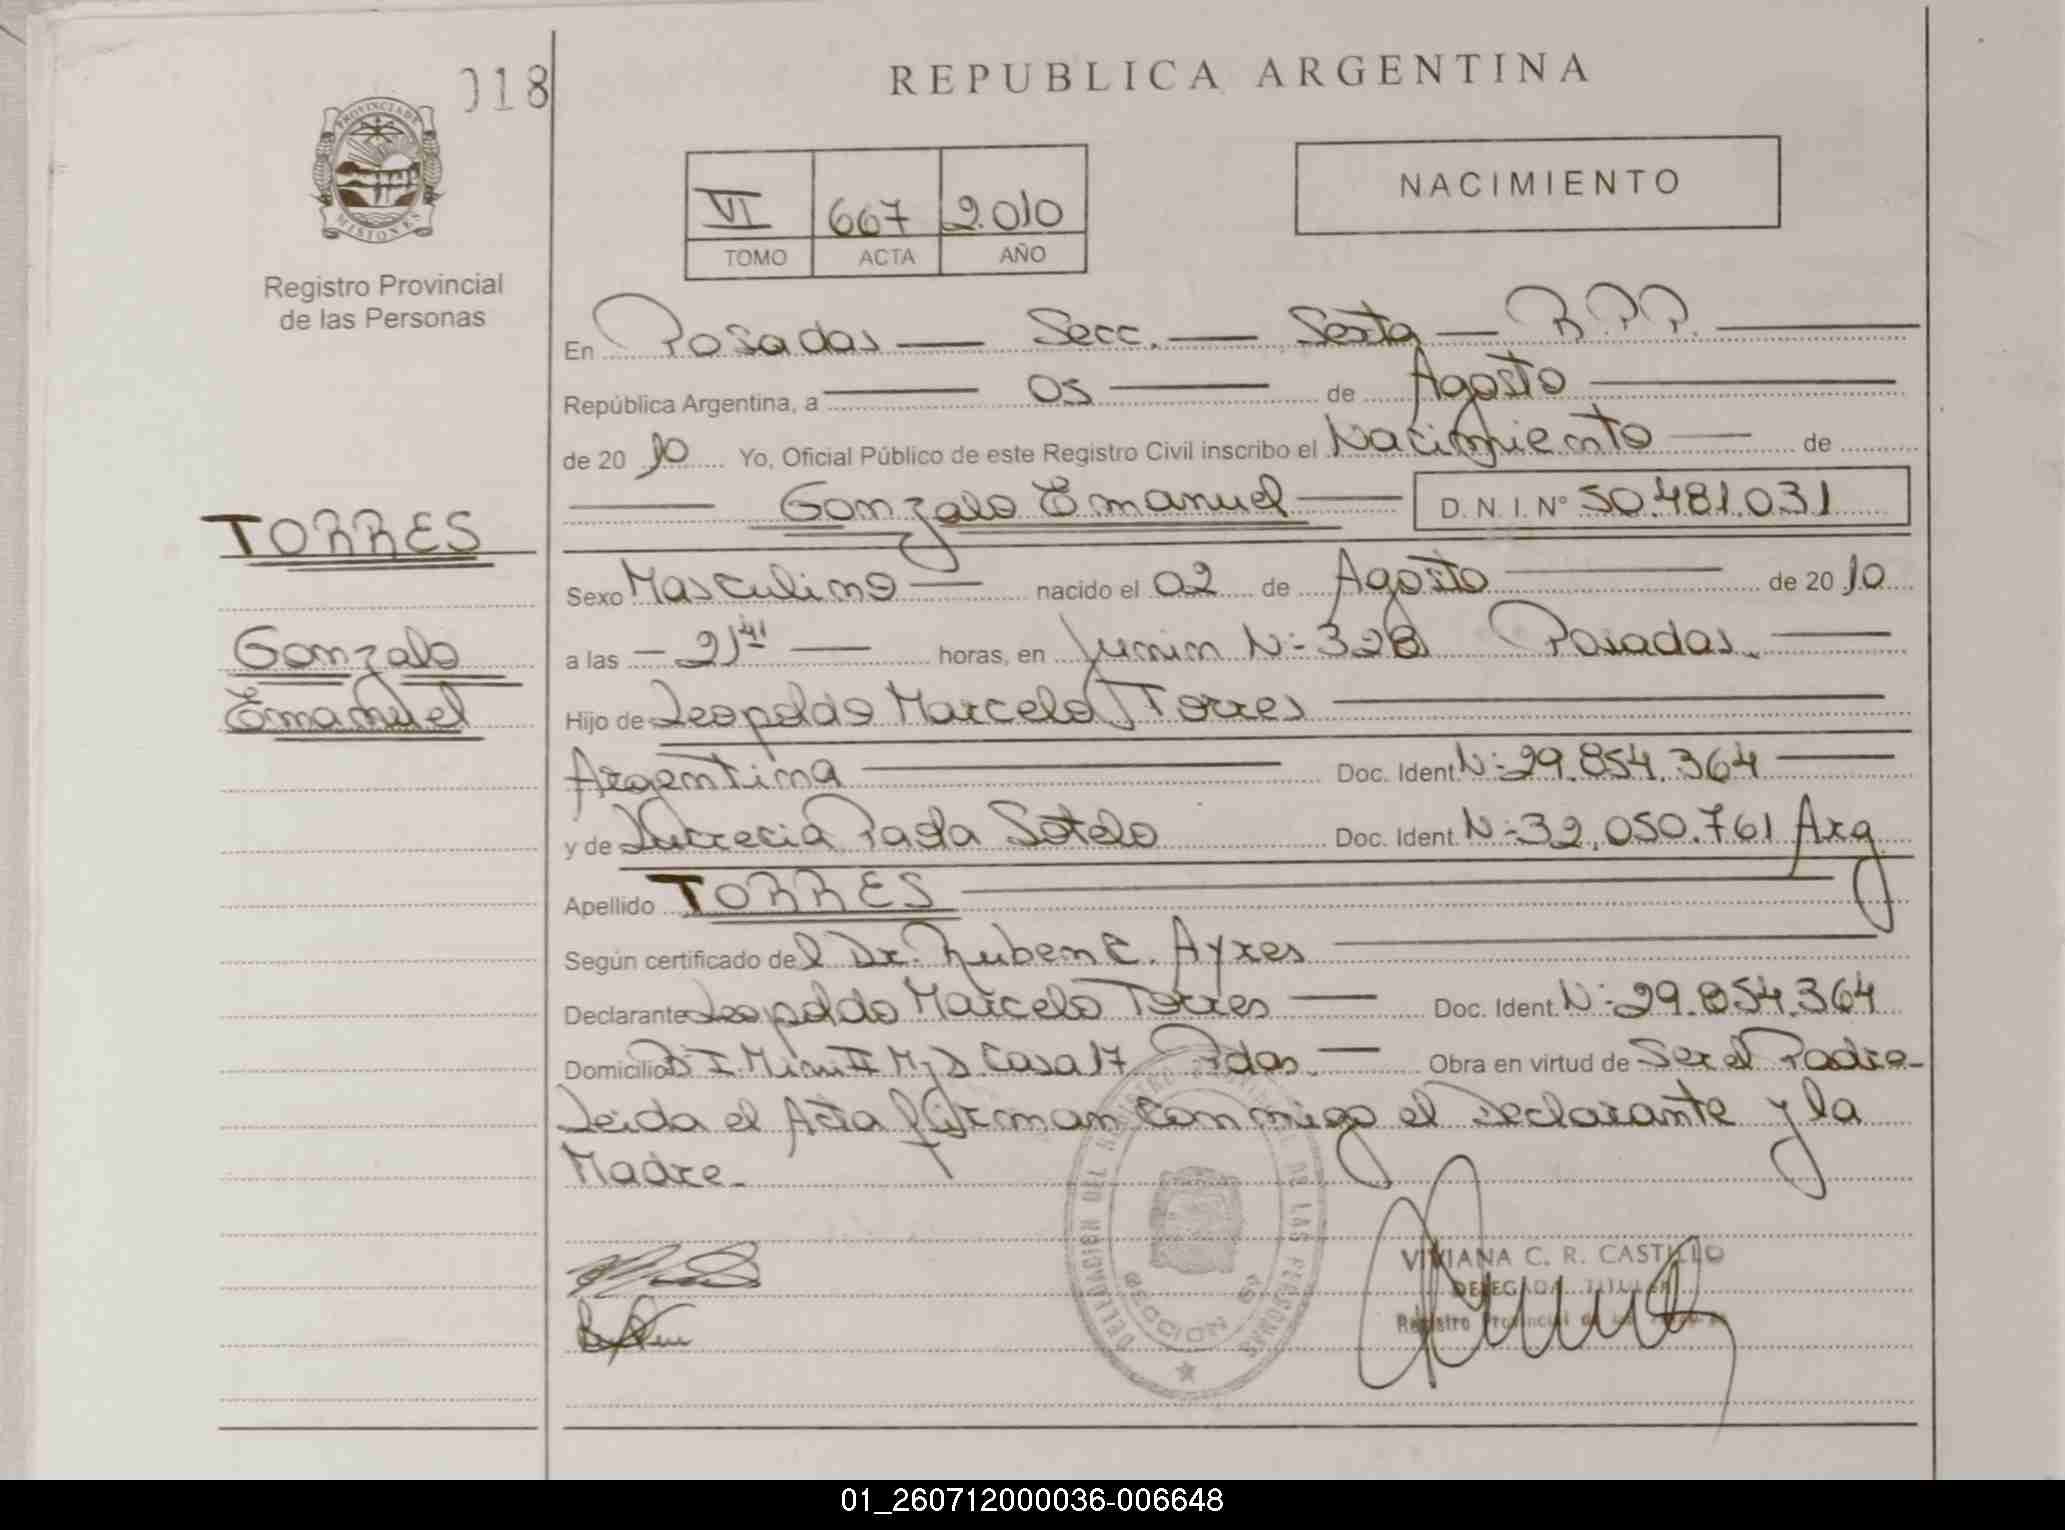 018
REPUBLICA ARGENTINA
PROVINCIA DE
MISIONES
Registro Provincial
de las Personas
VI 667 2.010
TOMO ACTA AÑO
NACIMIENTO
En Posadas — Secc. — Sexta — R.P.P. —
República Argentina, a — 05 — de Agosto —
de 20 10 Yo, Oficial Público de este Registro Civil inscribo el Nacimiento — de
— Gonzalo Emanuel — D. N. I. Nº 50.481.031
TORRES
Gonzalo
Emanuel
Sexo Masculino — nacido el 02 de Agosto — de 20 10
a las - 21 41 — horas, en Junin N- 328 Posadas. —
Hijo de Leopoldo Marcelo Torres —
Argentina — Doc. Ident. N- 29.854.364 —
y de Lucrecia Paola Sotelo Doc. Ident. N- 32.050.761 Arg
Apellido TORRES —
Según certificado del Dr. Ruben C. Ayres —
Declarante Leopoldo Marcelo Torres — Doc. Ident. N- 29.854.364
Domicilio Bº I. Mini II Mz D Casa 17 Pdas. — Obra en virtud de Ser el Padre-
Leida el Acta firman conmigo el Declarante y la
Madre-
DELEGACION DEL REGISTRO PROVINCIAL DE LAS PERSONAS
SECCION 6º
VIVIANA C. R. CASTILLO
DELEGADA TITULAR
Registro Provincial de las
01_260712000036-006648